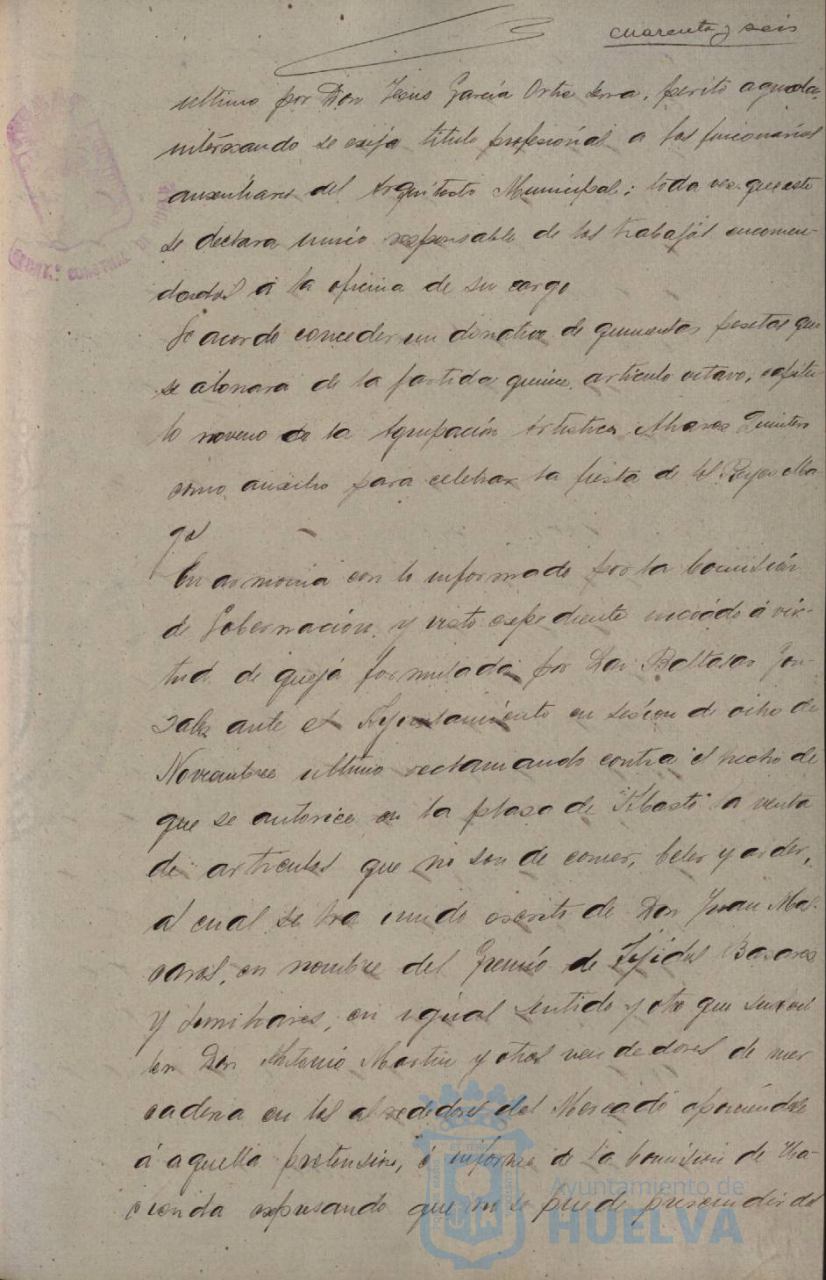 cuarenta y seis
ultimo por Don Jesus García Ortiz Serra, perito agricola
interesando se exija titulo profesional a los funcionarios
auxiliares del Arquitecto Municipal; toda vez que este
se declara unico responsable de los trabajos encomen-
dados á la oficina de su cargo
Se acordo conceder un donativo de quinientas pesetas que
se abonara de la partida quince, articulo octavo, capitu
lo noveno a la Agrupación Artistica Alvarez Quintero
como auxilio para celebrar la fiesta de los Reyes Ma
gos
En armonia con lo informado por la Comisión
de Gobernación, y visto expediente incoado á vir-
tud de queja formulada por Don Baltasar Gon-
zalez ante el Ayuntamiento en sesion de ocho de
Noviembre ultimo reclamando contra el hecho de
que se autorice en la plaza de Abasto la venta
de articulos que no son de comer, beber y arder,
al cual se ha unido escrito de Don Juan
en nombre del Gremio de Tejidos Bazares
y similares, en igual sentido y otro que suscri
ben Don Antonio Martin y otros vendedores de mer
caderia en los alrededores del Mercado oponiendose
á aquella pretensión, é informe de la Comision de Ha-
cienda expresando que no se puede prescindir de
Ayuntamiento de
HUELVA